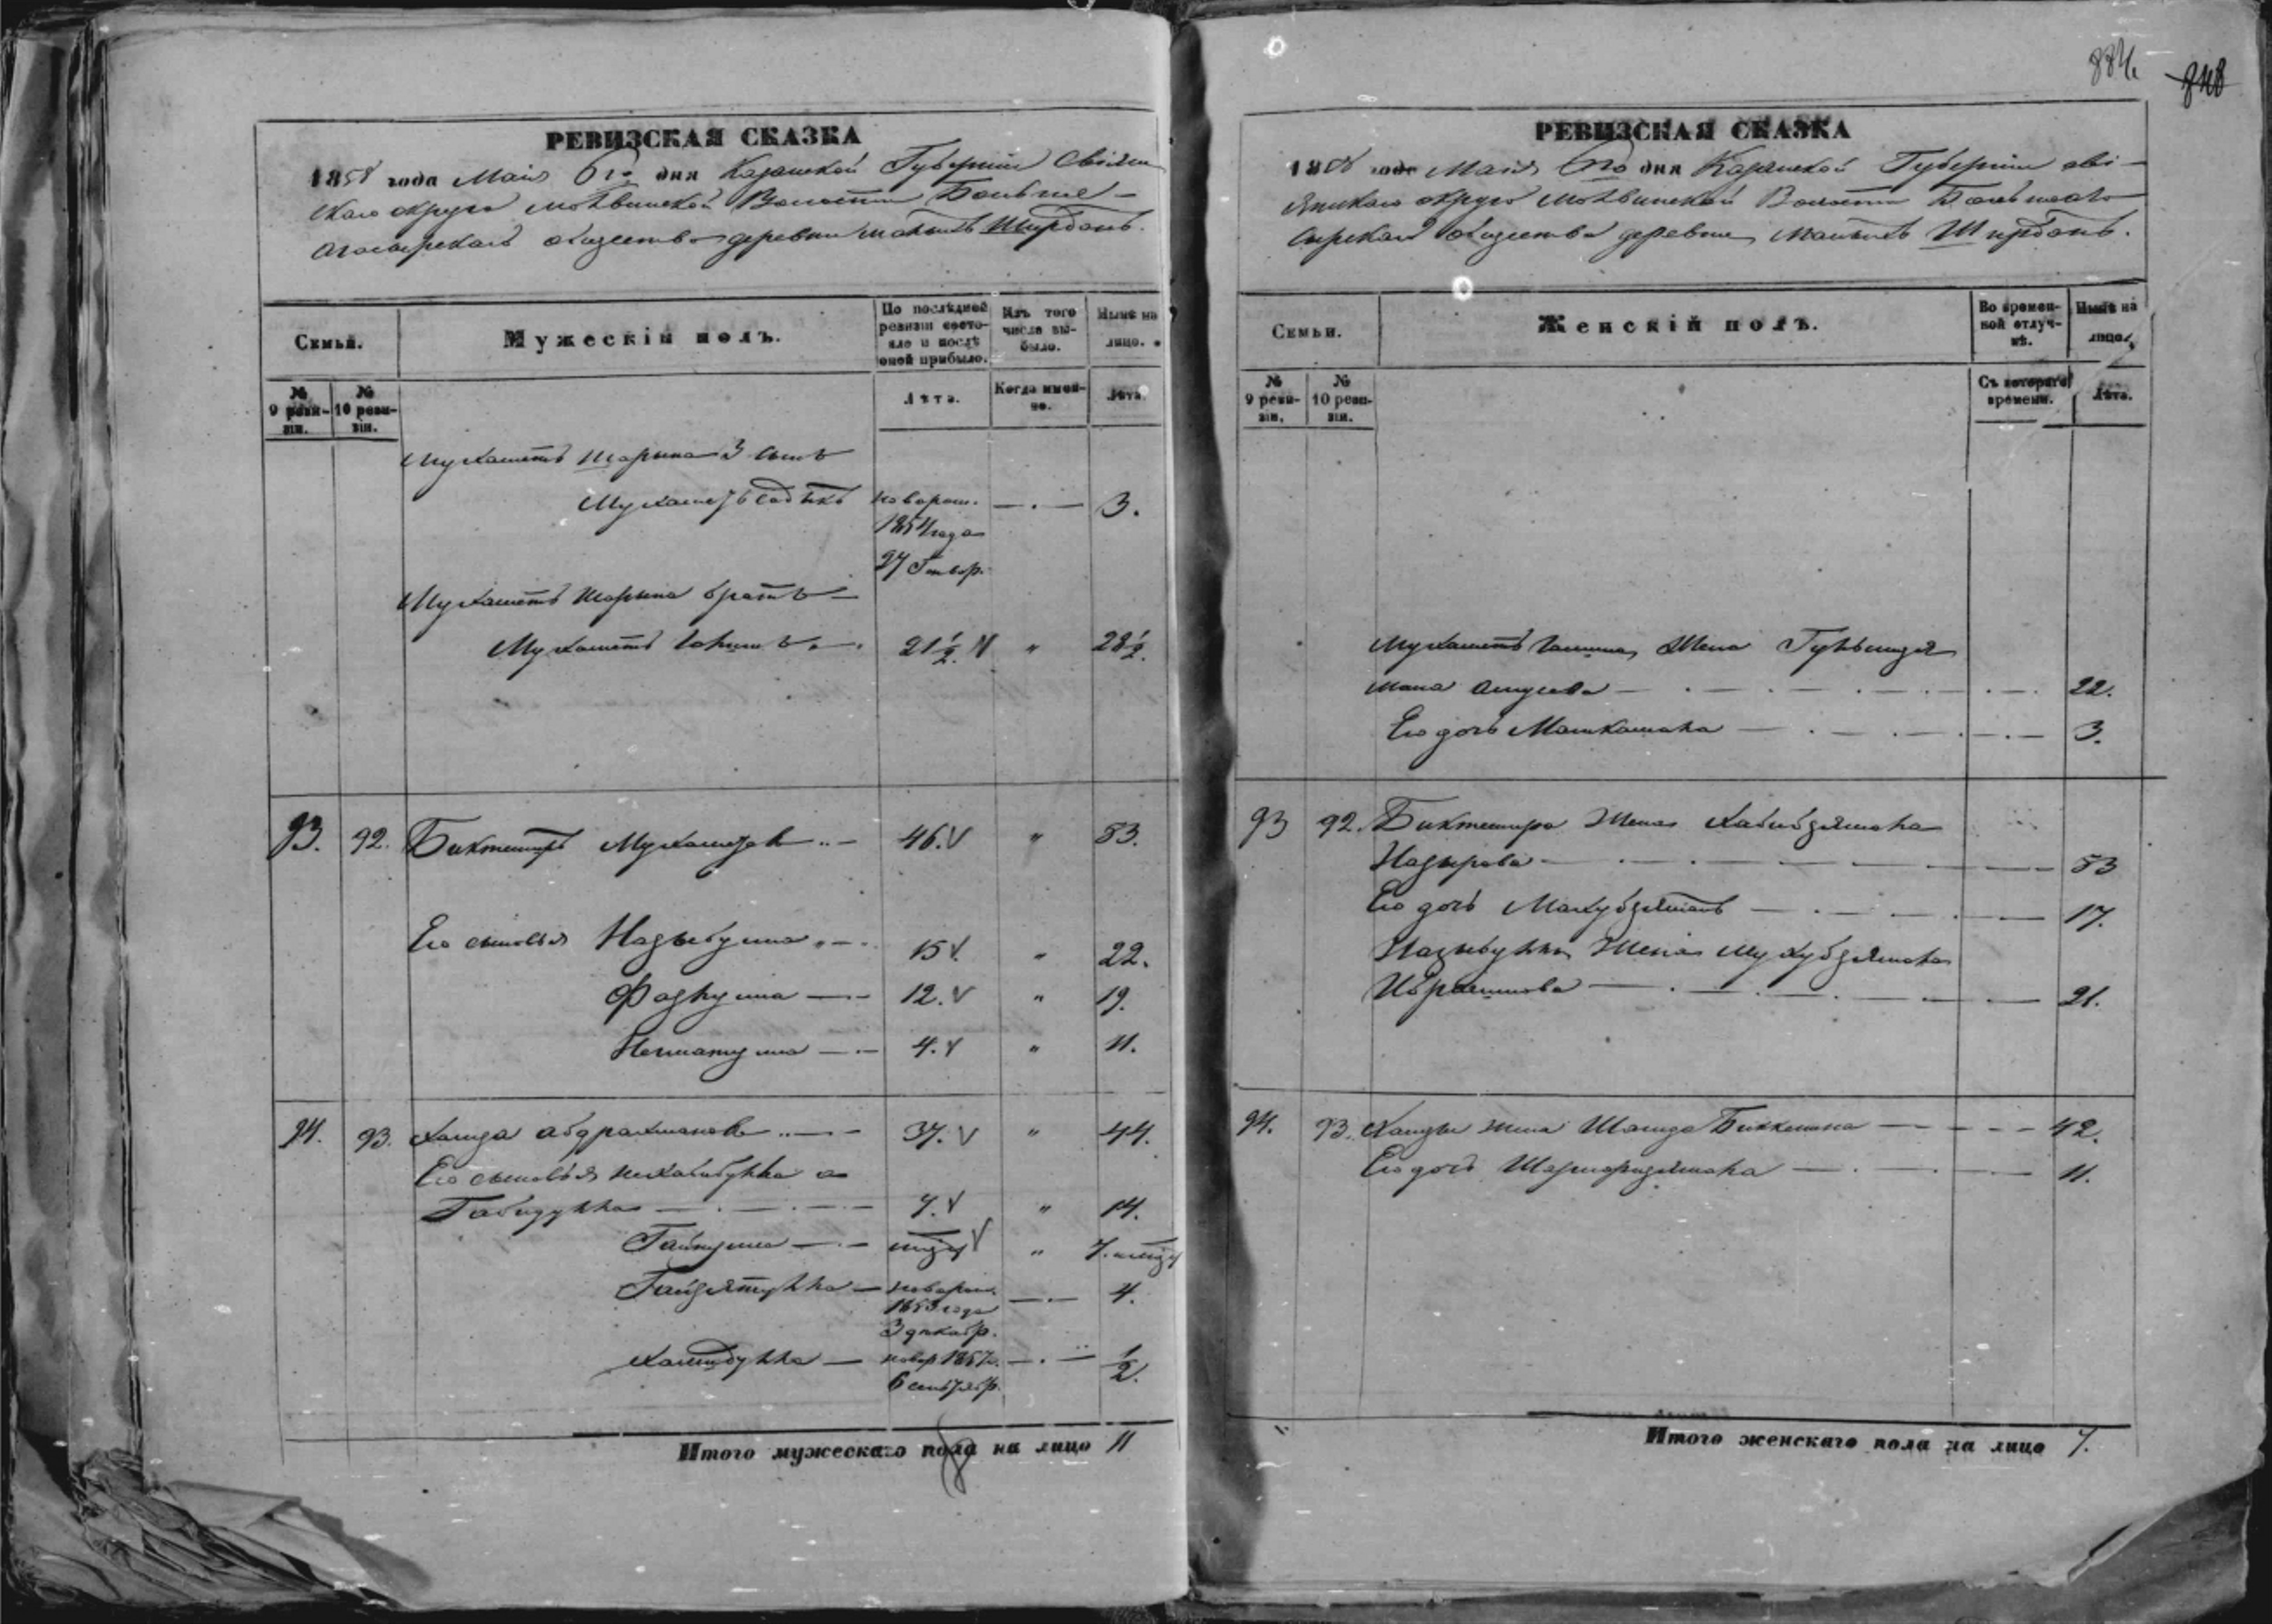 884.
848
РЕВИЗСКАЯ СКАЗКА
1858 года Маія 6го дня Казанской Губерніи Свіяж
скаго округа Молвинской Волости Больше-
общества деревни Малыхъ Ширданъ.
Семьи.
Мужескій полъ.
По послѣдней ревизіи состояло и послѣ оной прибыло.
Изъ того числа выбыло.
Нынѣ на лицо.
№ 9 ревизіи.
№ 10 ревизіи.
Лѣта.
Когда именно.
Лѣта.
Мухаметъ Шарыпа 3 сынъ
Мухаметъ Садыкъ новорож. — . — 3.
1854 года
27 Генвар.
Мухаметъ Шарыпа братъ —
Мухаметъ Галимъ 21 1/2. " 28 1/2.
93. 92. Биктемиръ Мухаметовъ 46. " 53.
Его сыновья Назыбулла 15 " 22.
Фазлулла — 12. " 19.
Негматулла — 4. " 11.
94. 93. Хамза Абдрахмановъ 37. " 44.
Его сыновья а
Габидулла — 7. " 14.
Гайнулла — " 7.
Гайзятулла — новорож. — 4.
1853 года
3 декабр.
Хамидулла — новор 1857 г. — 1/2.
6 сентября.
Итого мужескаго пола на лицо 11
РЕВИЗСКАЯ СКАЗКА
1858 года Маія 6го дня Казанской Губерніи Сві-
яжскаго округа Молвинской Волости
общества деревни Малыхъ Ширданъ.
Семьи.
Женскій полъ.
Во временной отлучкѣ.
Нынѣ на лицо.
№ 9 ревизіи.
№ 10 ревизіи.
Съ котораго времени.
Лѣта.
Мухаметъ Галима Жена
— 22.
Его дочь — 3.
93 92. Биктемира Жена Хабибзямала
Назырова — 53
Его дочь — 17.
Назыбуллы Жена
Ибраимова — 21.
94. 93. Хамзы жена — 42.
Его дочь — 11.
Итого женскаго пола на лицо 7.